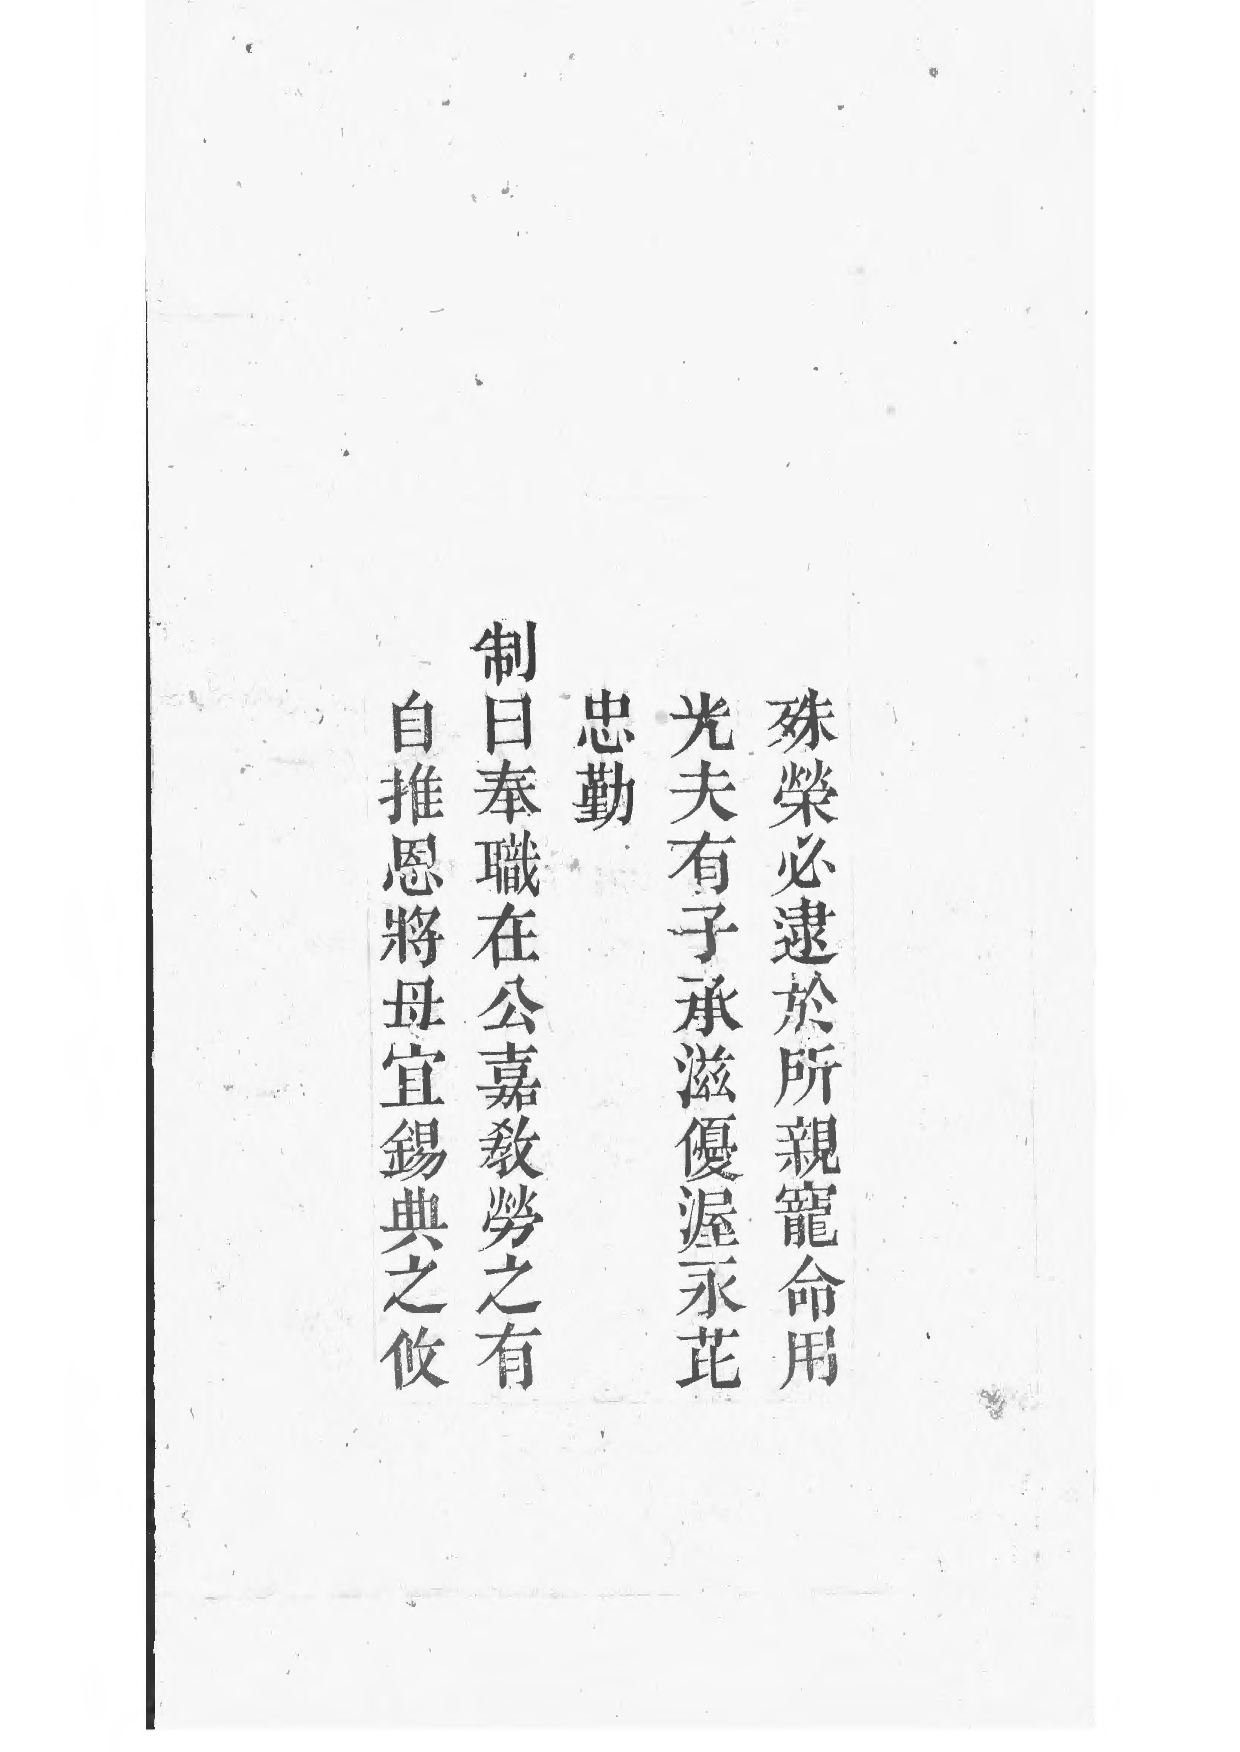 殊榮必逮於所親寵命用
光夫有子承滋優渥永芘
忠勤
制曰奉職在公嘉教勞之有
自推恩將母宜錫典之攸